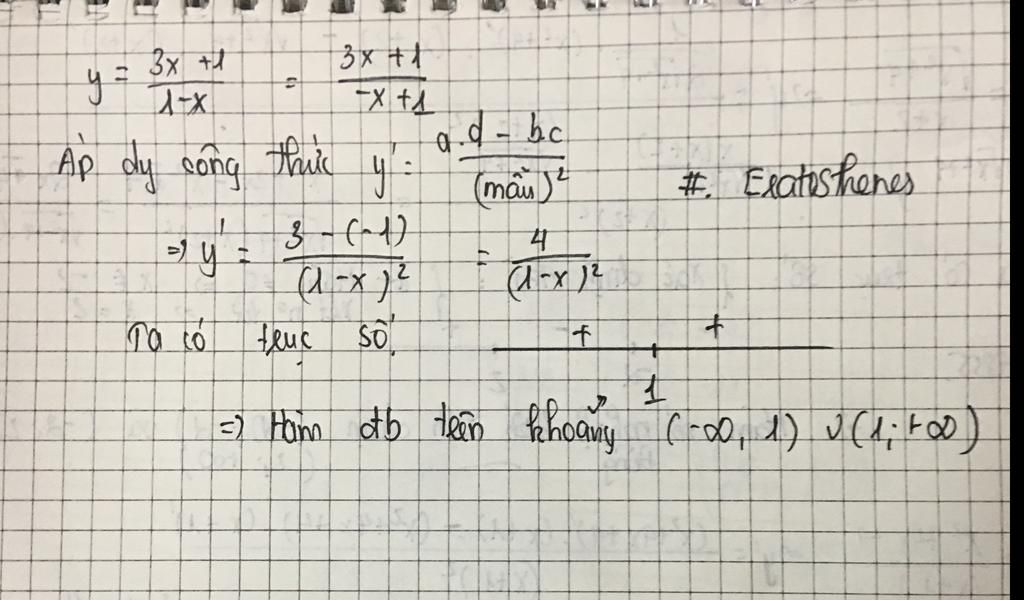 y = (3x + 1)/(1 - x) = (3x + 1)/(-x + 1)
Áp dụ công thức y' = (a.d - bc)/(mẫu)²
#. Eratosthenes
⇒ y' = (3 - (-1))/((1-x)²) = 4/((1-x)²)
Ta có trục số: + +
1
⇒ Hàm đb trên khoảng (-∞, 1) ∪ (1; +∞)